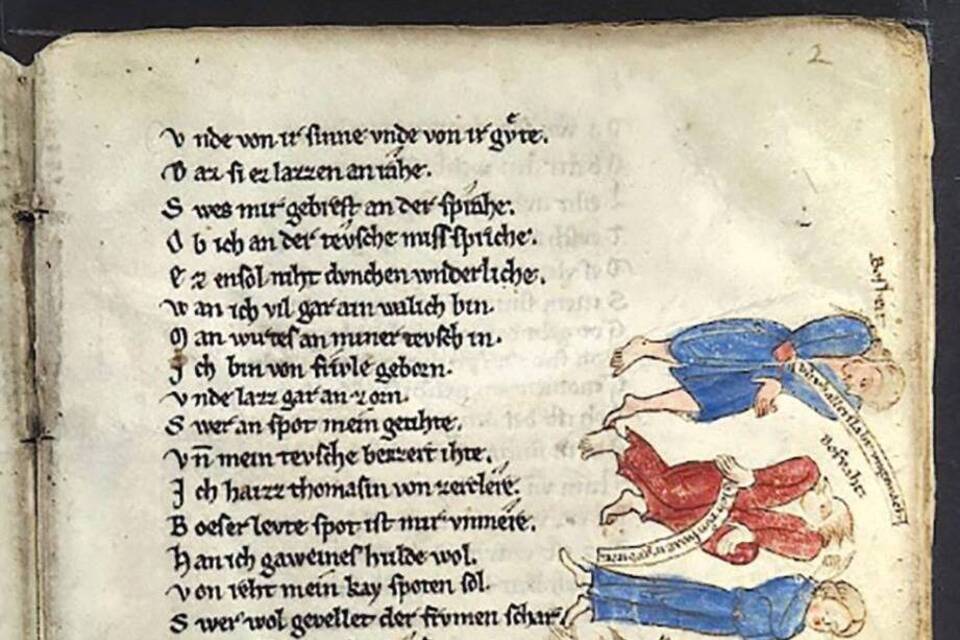 2
V nde von ir ſinne vnde von ir gvͤte.
D az ſi ez lazzen an rahe.
S wes mir gebreſt an der ſprahe.
O b ich an der tevſche miſſ ſpriche.
E z enſol niht dvnchen wnderliche.
W an ich vil gar ain walich bin.
M an wirteſ an miner tevſch in.
J ch bin von frivle geborn.
V nde lazz gar an zorn.
S wer an ſpot mein getihte.
V n̄ mein tevſche bezzert ihte.
J ch haizz thomaſin von zerclere.
B oeſer levte ſpot iſt mir vnmere.
H an ich gaweineſ hulde wol.
V on reht mein kay ſpoten ſol.
S wer wol gevellet der frvmen ſchar.